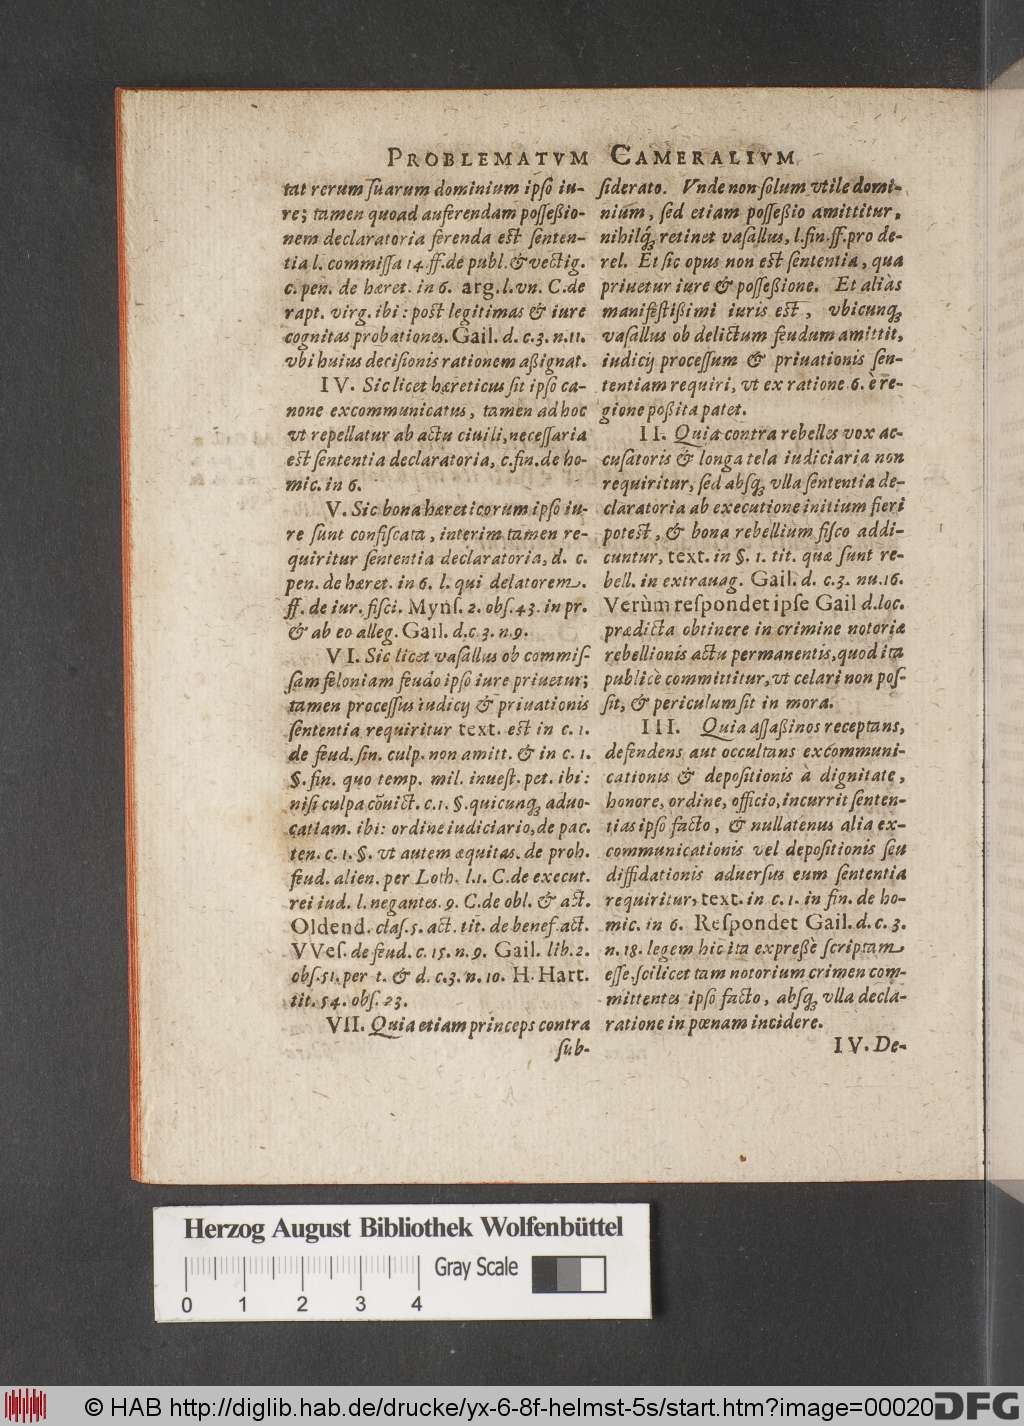 PROBLEMATVM CAMERALIVM
tat rerum ſuarum dominium ipſo iu-
re; tamen quoad auferendam poſſeßio-
nem declaratoria ferenda eſt ſenten-
tia l. commiſſa 14. ff. de publ. & vectig.
c. pen. de hæret. in 6. arg. l. vn. C. de
rapt. virg. ibi: poſt legitimas & iure
cognitas probationes. Gail. d. c. 3. n. 11.
vbi huius deciſionis rationem aßignat.
IV. Sic licet hæreticus ſit ipſo ca-
none excommunicatus, tamen ad hoc
vt repellatur ab actu ciuili, neceſſaria
eſt ſententia declaratoria, c. fin. de ho-
mic. in 6.
V. Sic bona hæreticorum ipſo iu-
re ſunt confiſcata, interim tamen re-
quiritur ſententia declaratoria, d. c.
pen. de hæret. in 6. l. qui delatorem.
ff. de iur. fiſci. Mynſ. 2. obſ. 43. in pr.
& ab eo alleg. Gail. d. c. 3. n. 9.
VI. Sic licet vaſallus ob commiſ-
ſam feloniam feudo ipſo iure priuetur;
tamen proceſſus iudicij & priuationis
ſententia requiritur text. eſt in c. 1.
de feud. ſin. culp. non amitt. & in c. 1.
§. fin. quo temp. mil. inueſt. pet. ibi:
niſi culpa cõuict. c. 1. §. quicunq́; aduo-
catiam. ibi: ordine iudiciario, de pac.
ten. c. 1. §. vt autem æquitas. de proh.
feud. alien. per Loth. l. 1. C. de execut.
rei iud. l. negantes. 9. C. de obl. & act.
Oldend. claſ. 5. act. tit. de benef. act.
VVeſ. de feud. c. 15. n. 9. Gail. lib. 2.
obſ. 51. per t. & d. c. 3. n. 10. H. Hart.
tit. 54. obſ. 23.
VII. Quia etiam princeps contra
ſub-
ſiderato. Vnde non ſolum vtile domi-
nium, ſed etiam poſſeßio amittitur,
nihilq́; retinet vaſallus, l. fin. ff. pro de-
rel. Et ſic opus non eſt ſententia, qua
priuetur iure & poſſeßione. Et aliàs
manifeſtißimi iuris eſt, vbicunq́;
vaſallus ob delictum feudum amittit,
iudicij proceſſum & priuationis ſen-
tentiam requiri, vt ex ratione 6. è re-
gione poßita patet.
II. Quia contra rebelles vox ac-
cuſatoris & longa tela iudiciaria non
requiritur, ſed abſq́; vlla ſententia de-
claratoria ab executione initium fieri
poteſt, & bona rebellium fiſco addi-
cuntur, text. in §. 1. tit. quæ ſunt re-
bell. in extrauag. Gail. d. c. 3. nu. 16.
Verùm reſpondet ipſe Gail d. loc.
prædicta obtinere in crimine notoriæ
rebellionis actu permanentis, quod ita
publicè committitur, vt celari non poſ-
ſit, & periculum ſit in mora.
III. Quia aſſaßinos receptans,
defendens aut occultans excommuni-
cationis & depoſitionis à dignitate,
honore, ordine, officio, incurrit ſenten-
tias ipſo facto, & nullatenus alia ex-
communicationis vel depoſitionis ſeu
diffidationis aduerſus eum ſententia
requiritur, text. in c. 1. in fin. de ho-
mic. in 6. Reſpondet Gail. d. c. 3.
n. 18. legem hic ita expreßè ſcriptam
eſſe, ſcilicet tam notorium crimen com-
mittentes ipſo facto, abſq́; vlla decla-
ratione in pœnam incidere.
IV. De-
Herzog August Bibliothek Wolfenbüttel
Gray Scale
0 1 2 3 4
© HAB http://diglib.hab.de/drucke/yx-6-8f-helmst-5s/start.htm?image=00020
DFG